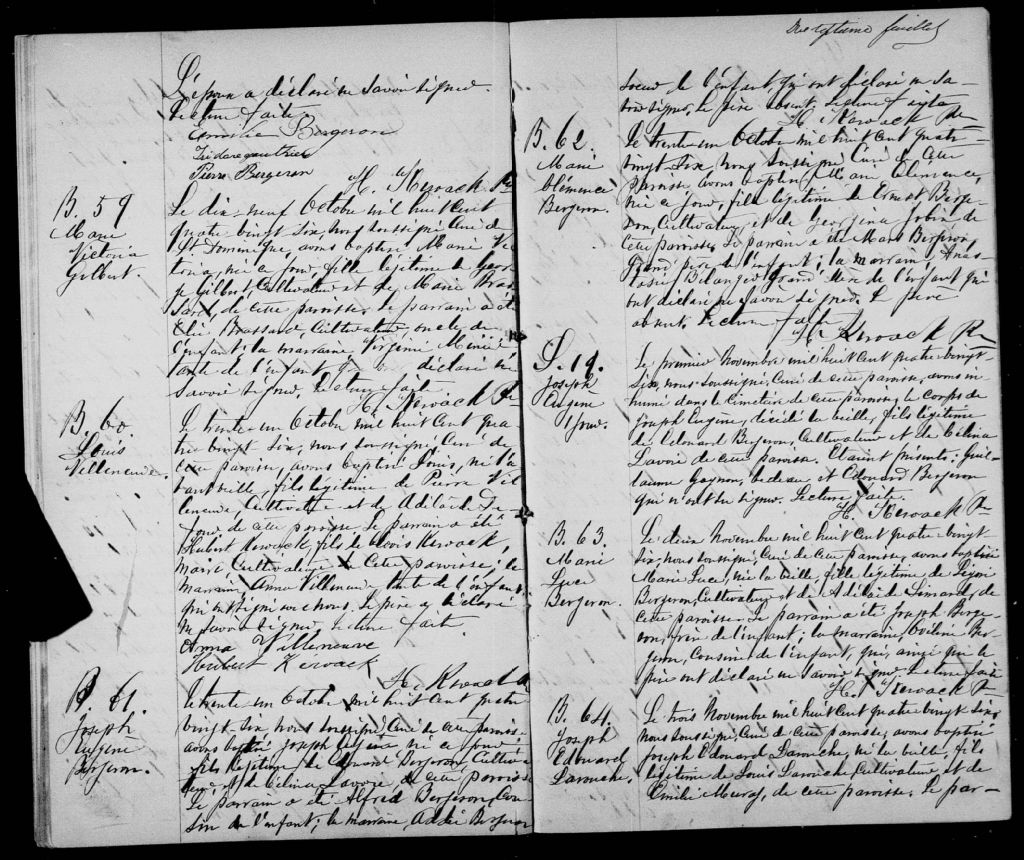 L'époux a déclaré ne savoir signer.
Lecture faite.
Bergeron
Pierre Bergeron
H. Kerouack Ptre
B. 59
Marie
Victoria
Gilbert.
Le dix-neuf Octobre mil huit cent
quatre vingt six, nous soussigné Curé de
St Dominique, avons baptisé Marie Vic-
toria, née ce jour, fille légitime de Geor-
ge Gilbert, Cultivateur et de Marie Bras-
sard, de cette paroisse. Le parrain a été
Elie Brassard, Cultivateur, oncle de
l'enfant; la marraine, Virginie
tante de l'enfant qui déclaré ne
savoir signer. Lecture faite.
H. Kerouack Ptre
B. 60.
Louis
Villeneuve.
Le trente-un Octobre mil huit cent qua
tre vingt-six, nous soussigné, Curé de
cette paroisse, avons baptisé Louis, né l'a-
vant veille, fils légitime de Pierre Vil
leneuve, Cultivateur et de Adélaïde
de cette paroisse. Le parrain a été
Hubert Kerouack, fils de Louis Kerouack,
Cultivateur de cette paroisse; la
marraine Anna Villeneuve tante de l'enfant
qui ont signé avec nous. Le père a déclaré
ne savoir signer. Lecture faite.
Anna Villeneuve
Hubert Kerouack
H. Kerouack Ptre
B. 61.
Joseph
Eugène
Bergeron.
Le trente-un Octobre mil huit cent quatre
vingt-six nous soussigné, Curé de cette paroisse
avons baptisé Joseph Eugène né ce jour
fils légitime de Edouard Bergeron, Cultiva-
teur et de Célina Lavoie de cette paroisse
Le parrain a été Alfred Bergeron, Cou-
sin de l'enfant; la marraine, Bergeron
feuillet
soeur de l'enfant, qui ont déclaré ne sa-
voir signer, le père absent. Lecture faite
H. Kerouack Ptre
B. 62.
Marie
Clémence
Bergeron.
Le trente-un Octobre mil huit cent quatre-
vingt six, nous soussigné Curé de cette
paroisse avons baptisé Marie Clémence,
née ce jour, fille légitime de Ernest Berge-
ron, Cultivateur, et de Georgina Jobin de
cette paroisse. Le parrain a été Marc Bergeron,
Grand père de l'enfant; la marraine, Anas-
tasie Bélanger Grand'Mère de l'enfant qui
ont déclaré ne savoir signer. Le père
absent. Lecture faite
H. Kerouack Ptre
S. 19.
Joseph
Eugène
1 jour.
Le premier Novembre mil huit cent quatre vingt
six, nous soussigné, Curé de cette paroisse, avons in
humé dans le Cimetière de cette paroisse, le corps de
Joseph Eugène, décédé la veille, fils légitime
de Edouard Bergeron, Cultivateur et de Célina
Lavoie de cette paroisse. Etaient présents: Guil-
laume Gagnon, bedeau et Edouard Bergeron
qui n'ont su signer. Lecture faite.
H. Kerouack Ptre
B. 63.
Marie
Luce
Bergeron.
Le deux Novembre mil huit cent quatre vingt
six, nous soussigné, Curé de cette paroisse, avons baptisé
Marie Luce, née la veille, fille légitime de
Bergeron, Cultivateur et de Adélaïde Simard, de
cette paroisse. Le parrain a été Joseph Berge-
ron, frère de l'enfant; la marraine, Ber-
geron, Cousine de l'enfant, qui, ainsi que le
père ont déclaré ne savoir signer. Lecture faite
H. Kerouack Ptre
B. 64.
Joseph
Edouard
Larouche.
Le trois Novembre mil huit cent quatre vingt six,
nous soussigné, Curé de cette paroisse, avons baptisé
Joseph Edouard Larouche, né la veille, fils
légitime de Louis Larouche Cultivateur, et de
Emilie de cette paroisse. Le par-